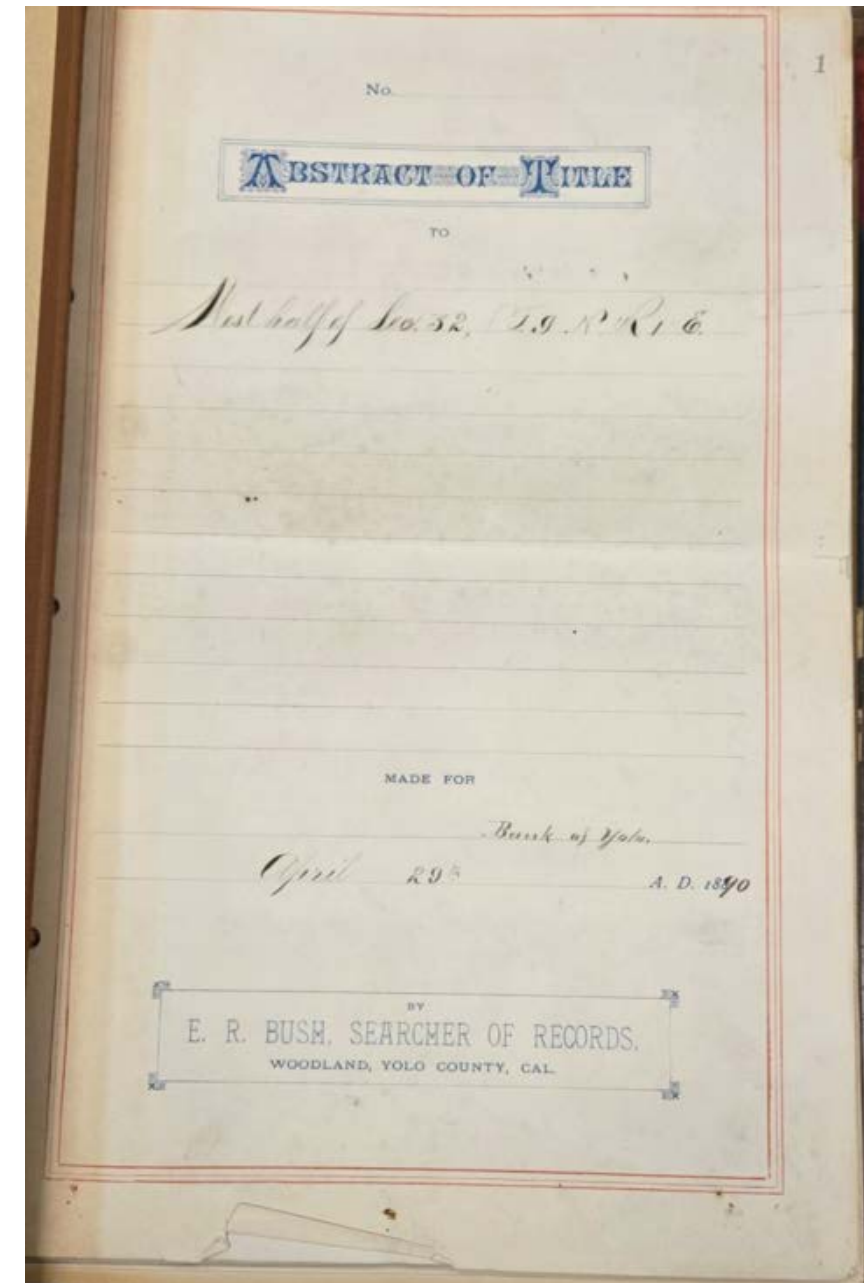 1
No.
ABSTRACT OF TITLE
TO
West half of Sec. 32, T. 9. N R 1 E.
MADE FOR
Bank of Yolo.
April 29th A. D. 1890
BY
E. R. BUSH, SEARCHER OF RECORDS.
WOODLAND, YOLO COUNTY, CAL.